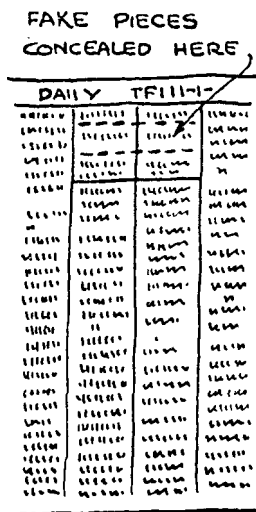 FAKE PIECES
CONCEALED HERE
DAILY